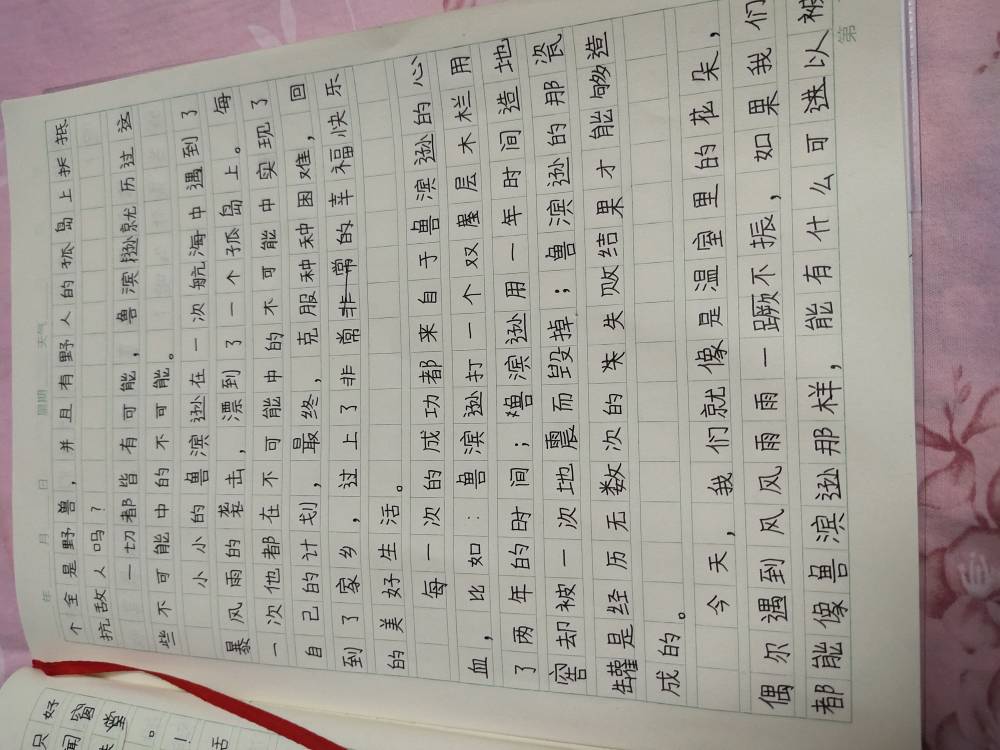 年 月 日 星期 天气
个全是野兽，并且有野人的孤岛上抵
抗敌人吗？
一切都皆有可能，鲁滨逊就历过这
些不可能中的不可能。
小小的鲁滨逊在一次航海中遇到了
暴风雨的袭击，漂到了一个孤岛上。每
一次他都在不可能中的不可能中实现了
自己的计划，最终，克服种种困难，回
到了家乡，过上了非常非常的幸福快乐
的美好生活。
每一次的成功都来自于鲁滨逊的心
血，比如：鲁滨逊打一个双层木栏用
了两年的时间；鲁滨逊用一年时间造地
窖却被一次地震而毁掉；鲁滨逊的那瓷
罐是经历无数次的失失败结果才能够造
成的。
今天，我们就像是温室里的花朵，
偶尔遇到风风雨雨一蹶不振，如果我们
都能像鲁滨逊那样，能有什么可进以被
第
只好
闻窗
堂
。
！
活